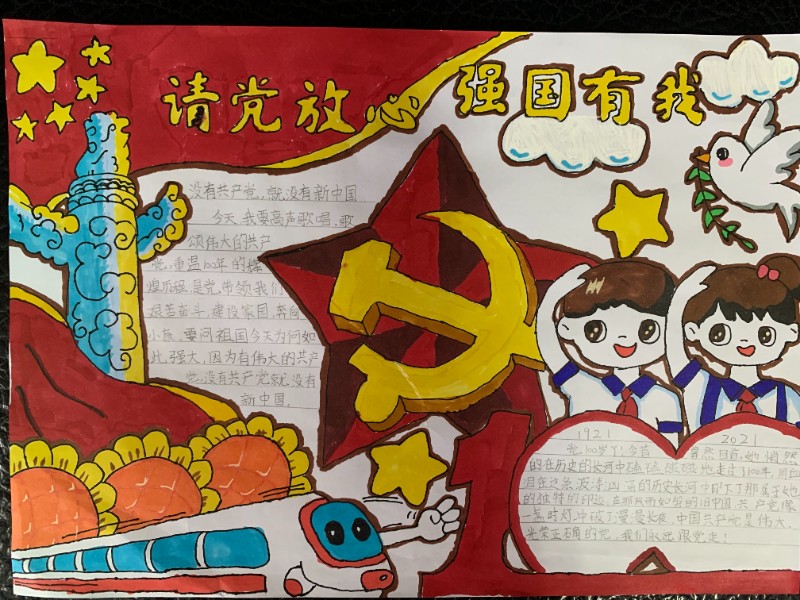 请党放心 强国有我
没有共产党,就没有新中国
今天,我要高声歌唱,歌
颂伟大的共产
党,重温100年的辉
煌历程,是党,带领我们
艰苦奋斗,建设家园,奔向
小康,要问祖国今天为何如
此强大,因为有伟大的共产
党,没有共产党就没有
新中国.
1921 2021
党,100岁了!今昔
的在历史的长河中磕磕碰碰地走过了100年,用
月在这条波涛汹涌的历史长河中留下了那
的独特的印迹,在那风雨如晦的旧中国,共产党像
一盏明灯,冲破了漫漫长夜,中国共产党是伟大、
光荣正确的党,我们永远跟党走!